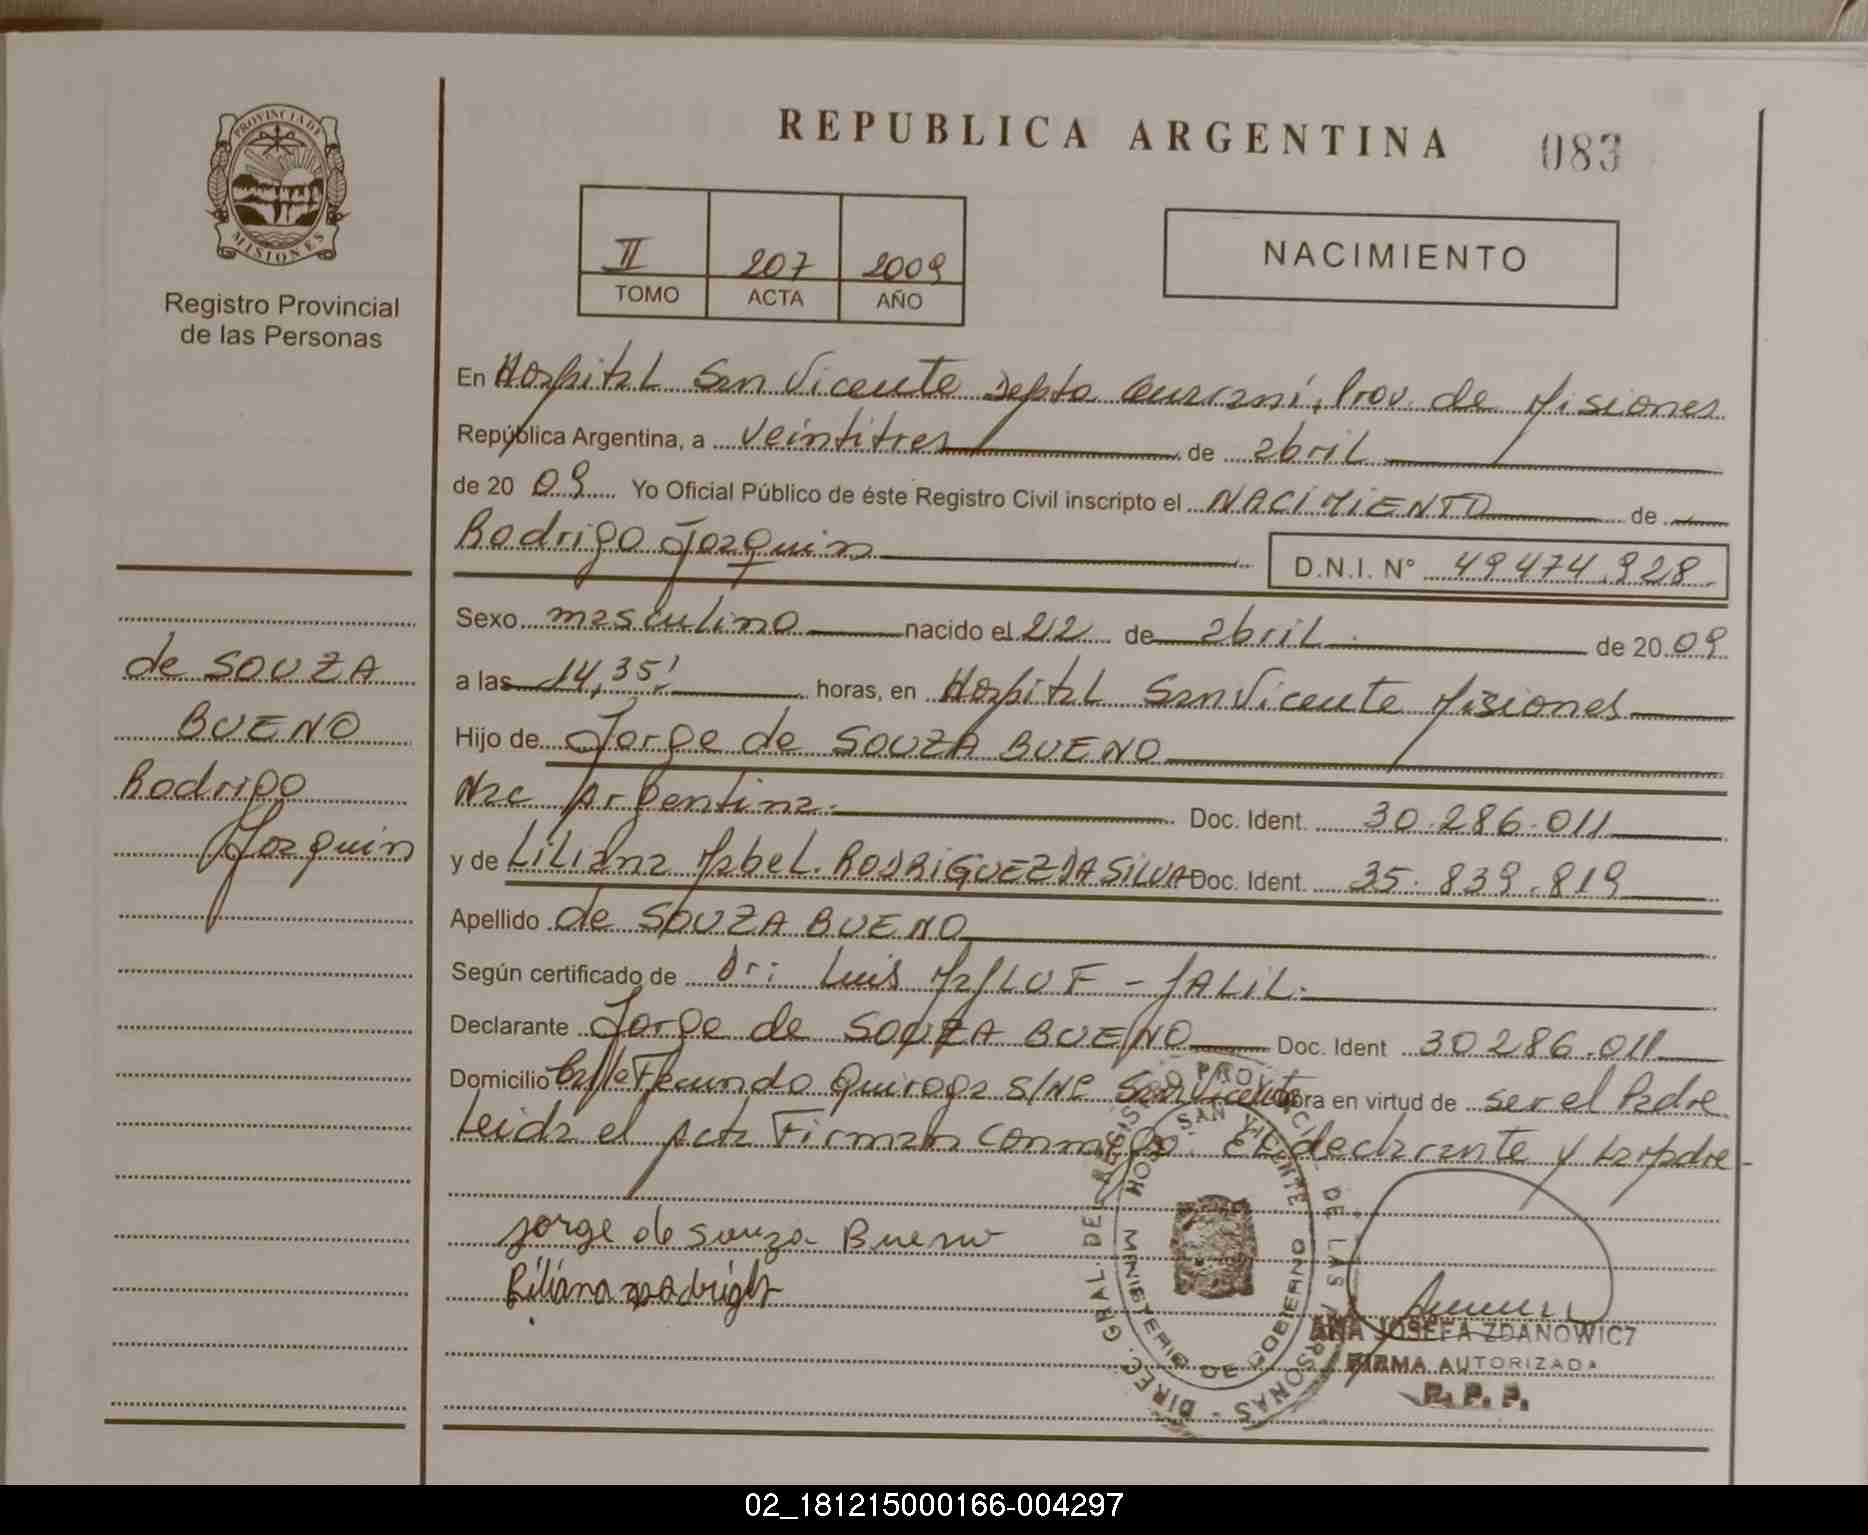 REPUBLICA ARGENTINA
083
PROVINCIA DE
MISIONES
Registro Provincial
de las Personas
II 207 2009
TOMO ACTA AÑO
NACIMIENTO
En Hospital San Vicente Depto Guaraní, Prov. de Misiones
República Argentina, a veintitres de abril
de 2009 Yo Oficial Público de éste Registro Civil inscripto el NACIMIENTO de
Rodrigo Joaquin D.N.I. N° 49474.928
Sexo masculino nacido el 22 de abril de 2009
a las 14,35' horas, en Hospital San Vicente Misiones
Hijo de Jorge de SOUZA BUENO
Nac Argentina. Doc. Ident. 30.286.011
y de Liliana Mabel. RODRIGUEZ DA SILVA Doc. Ident. 35.839.819
Apellido de SOUZA BUENO
Según certificado de Dr: Luis MALUF - JALIL.
Declarante Jorge de SOUZA BUENO Doc. Ident 30286.011
Domicilio Calle Facundo Quiroga S/Nº San Vicente obra en virtud de ser el Padre
Leida el Acta Firman conmigo: el declarante y la Madre
de SOUZA
BUENO
Rodrigo
Joaquin
Jorge de Souza Bueno
Liliana
DIREC. GRAL. DEL REGISTRO PROVINCIAL DE LAS PERSONAS
HOSP. SAN VICENTE
MINISTERIO DE GOBIERNO
ANA JOSEFA ZDANOWICZ
FIRMA AUTORIZADA
R. P. P.
02_181215000166-004297